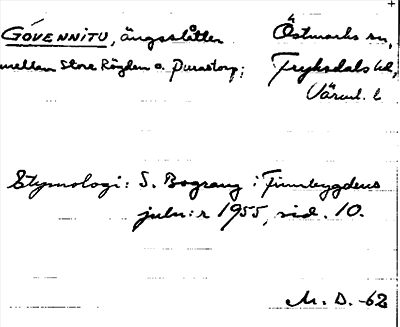 GÓVENNITU, ängsslåtter Östmarks sn,
mellan Store Rögden o. Purastorp; Fryksdals hd,
Värml. l.
Etymologi: S. Bograng i Finnbygdens
julnr 1955, sid. 10.
M. D. -62